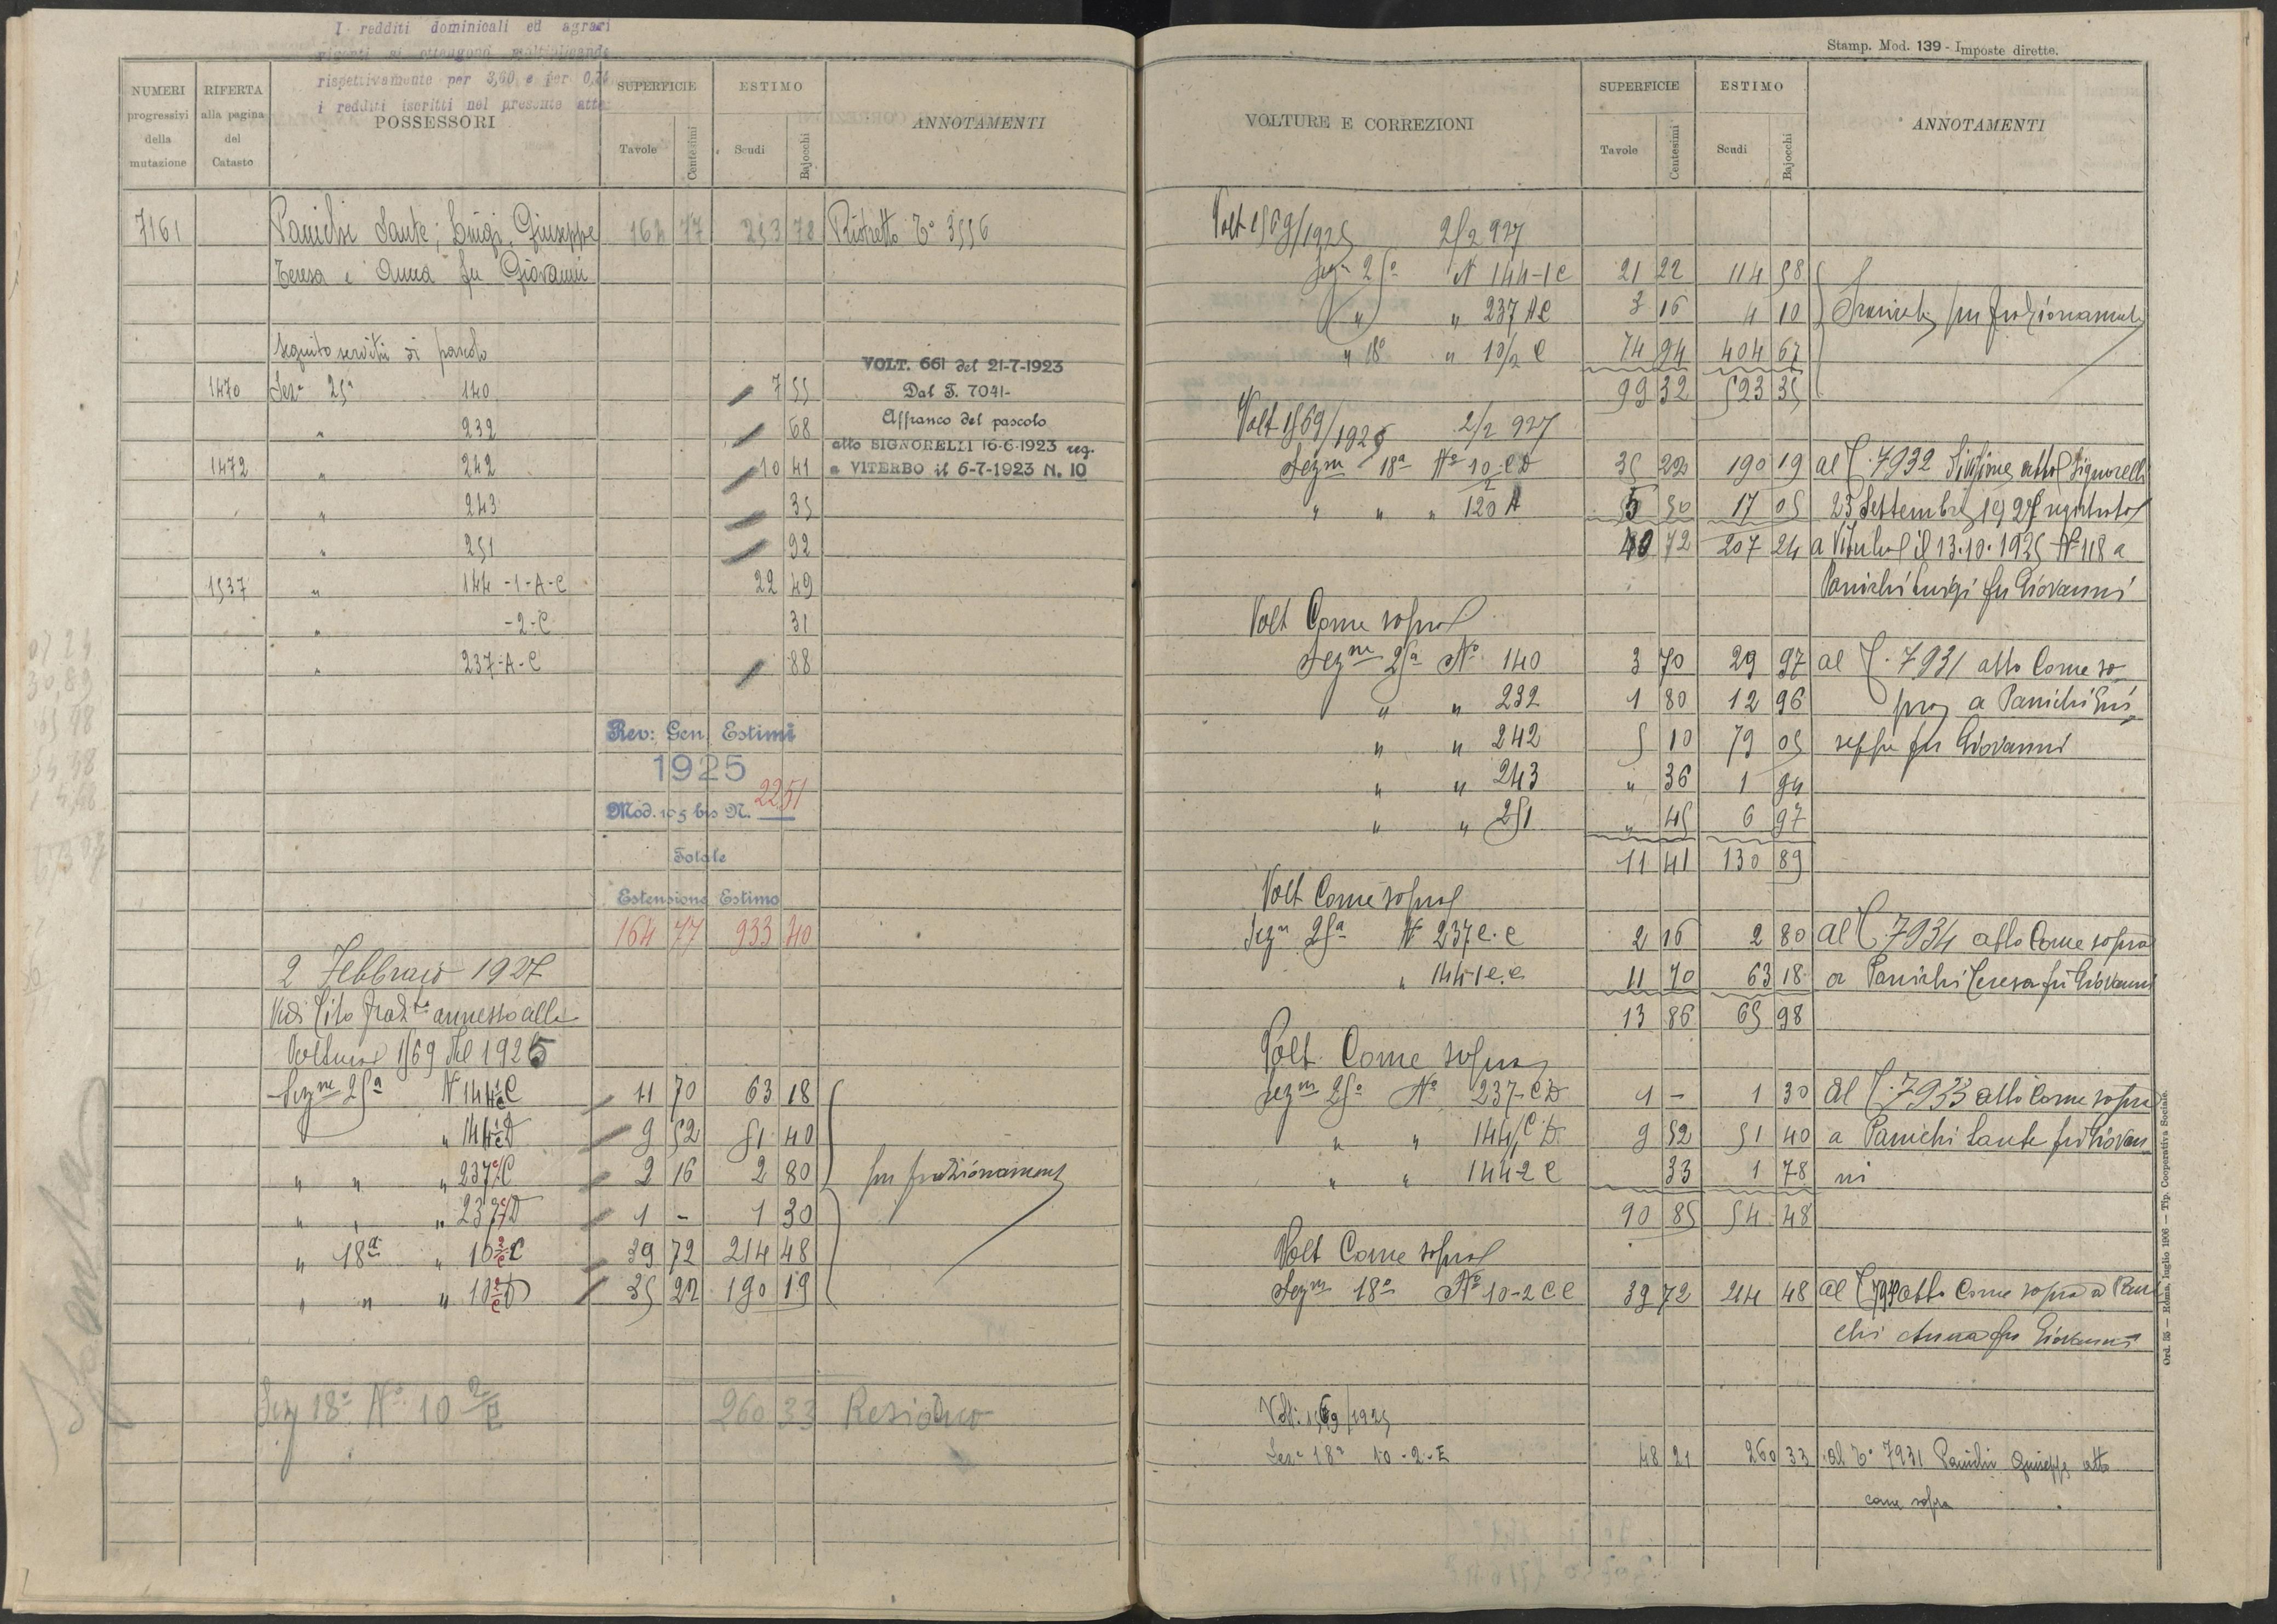 I redditi dominicali ed agrari
riportati si ottengono moltiplicando
rispettivamente per 3,60 e per 0,74
i redditi iscritti nel presente atto
NUMERI progressivi della mutazione
RIFERTA alla pagina del Catasto
POSSESSORI
SUPERFICIE
Tavole Centesimi
ESTIMO
Scudi Bajocchi
ANNOTAMENTI
7161 Panichi Sante; Luigi, Giuseppe 164 77 253 78 Ristretto T° 3556
Teresa e Anna fu Giovanni
Seguito servitù di pascolo
VOLT. 661 del 21-7-1923
1470 Sez. 25a 140 7 55 Dal T. 7041-
" 232 68 Affranco del pascolo
atto SIGNORELLI 16-6-1923 reg.
1472 " 242 10 41 a VITERBO il 6-7-1923 N. 10
" 243 35
" 251 92
1537 " 144-1-A-C 22 49
" -2-C 31
" 237-A-C 88
Rev: Gen. Estimi
1925
Mod. 105 bis N. 2251
Totale
Estensione Estimo
164 77 933 40
2 Febbraio 1927
Vedi Tipo Fraz.to annesso alla
Voltura 1569 del 1925
Sezne 25a N 144 1/C C 11 70 63 18
" 144 1/C D 9 52 51 40
" " " 237 C/C 2 16 2 80 per frazionamento
" " " 237 C/D 1 - 1 30
" 18a " 10 2/C C 39 72 214 48
" " " 10 2/C D 35 22 190 19
Sez 18a N° 10 2/E 260 33 Residuo
Stamp. Mod. 139 - Imposte dirette.
VOLTURE E CORREZIONI
SUPERFICIE
Tavole Centesimi
ESTIMO
Scudi Bajocchi
ANNOTAMENTI
Volt 1569/1925 2/2 927
Sezn 25a N 144-1C 21 22 114 58
" " 237 AC 3 16 4 10 per frazionamento
" 18a " 10/2 C 74 94 404 67
99 32 523 35
Volt 1569/1925 2/2 927
Sezne 18a No 10-CD 35 22 190 19 al T. 7932 Divisione atto Signorelli
2
" " " 120 A 5 50 17 05 25 Settembre 1925 registrato
40 72 207 24 a Viterbo il 13.10.1925 N° 118 a
Panichi Luigi fu Giovanni
Volt Come sopra
Sezne 25a No 140 3 70 29 97 al T. 7931 atto Come so-
" " 232 1 80 12 96 pra a Panichi Giu
" " 242 5 10 79 05 seppe fu Giovanni
" " 243 " 36 1 94
" " 251 " 45 6 97
11 41 130 89
Volt Come sopra
Sezn 25a N° 237 C.C 2 16 2 80 al T. 7934 atto Come sopra
" 144-1C.C 11 70 63 18 a Panichi Teresa fu Giovanni
13 86 65 98
Volt. Come sopra
Sezn 25a No 237-CD 1 - 1 30 al T. 7933 atto Come sopra
" " 144/1 C D 9 52 51 40 a Panichi Sante fu Giovan
" " 144-2 C 33 1 78 ni
90 85 54 48
Volt Come sopra
Sezne 18a No 10-2 C C 39 72 214 48 al T. atto Come sopra a Pani
chi Anna fu Giovanni
Volt: 1569/1925
Sez. 18a 10-2-E 48 21 260 33 al T° 7931 Panichi Giuseppe atto
come sopra
Ord. 35 — Roma, luglio 1906 — Tip. Cooperativa Sociale.